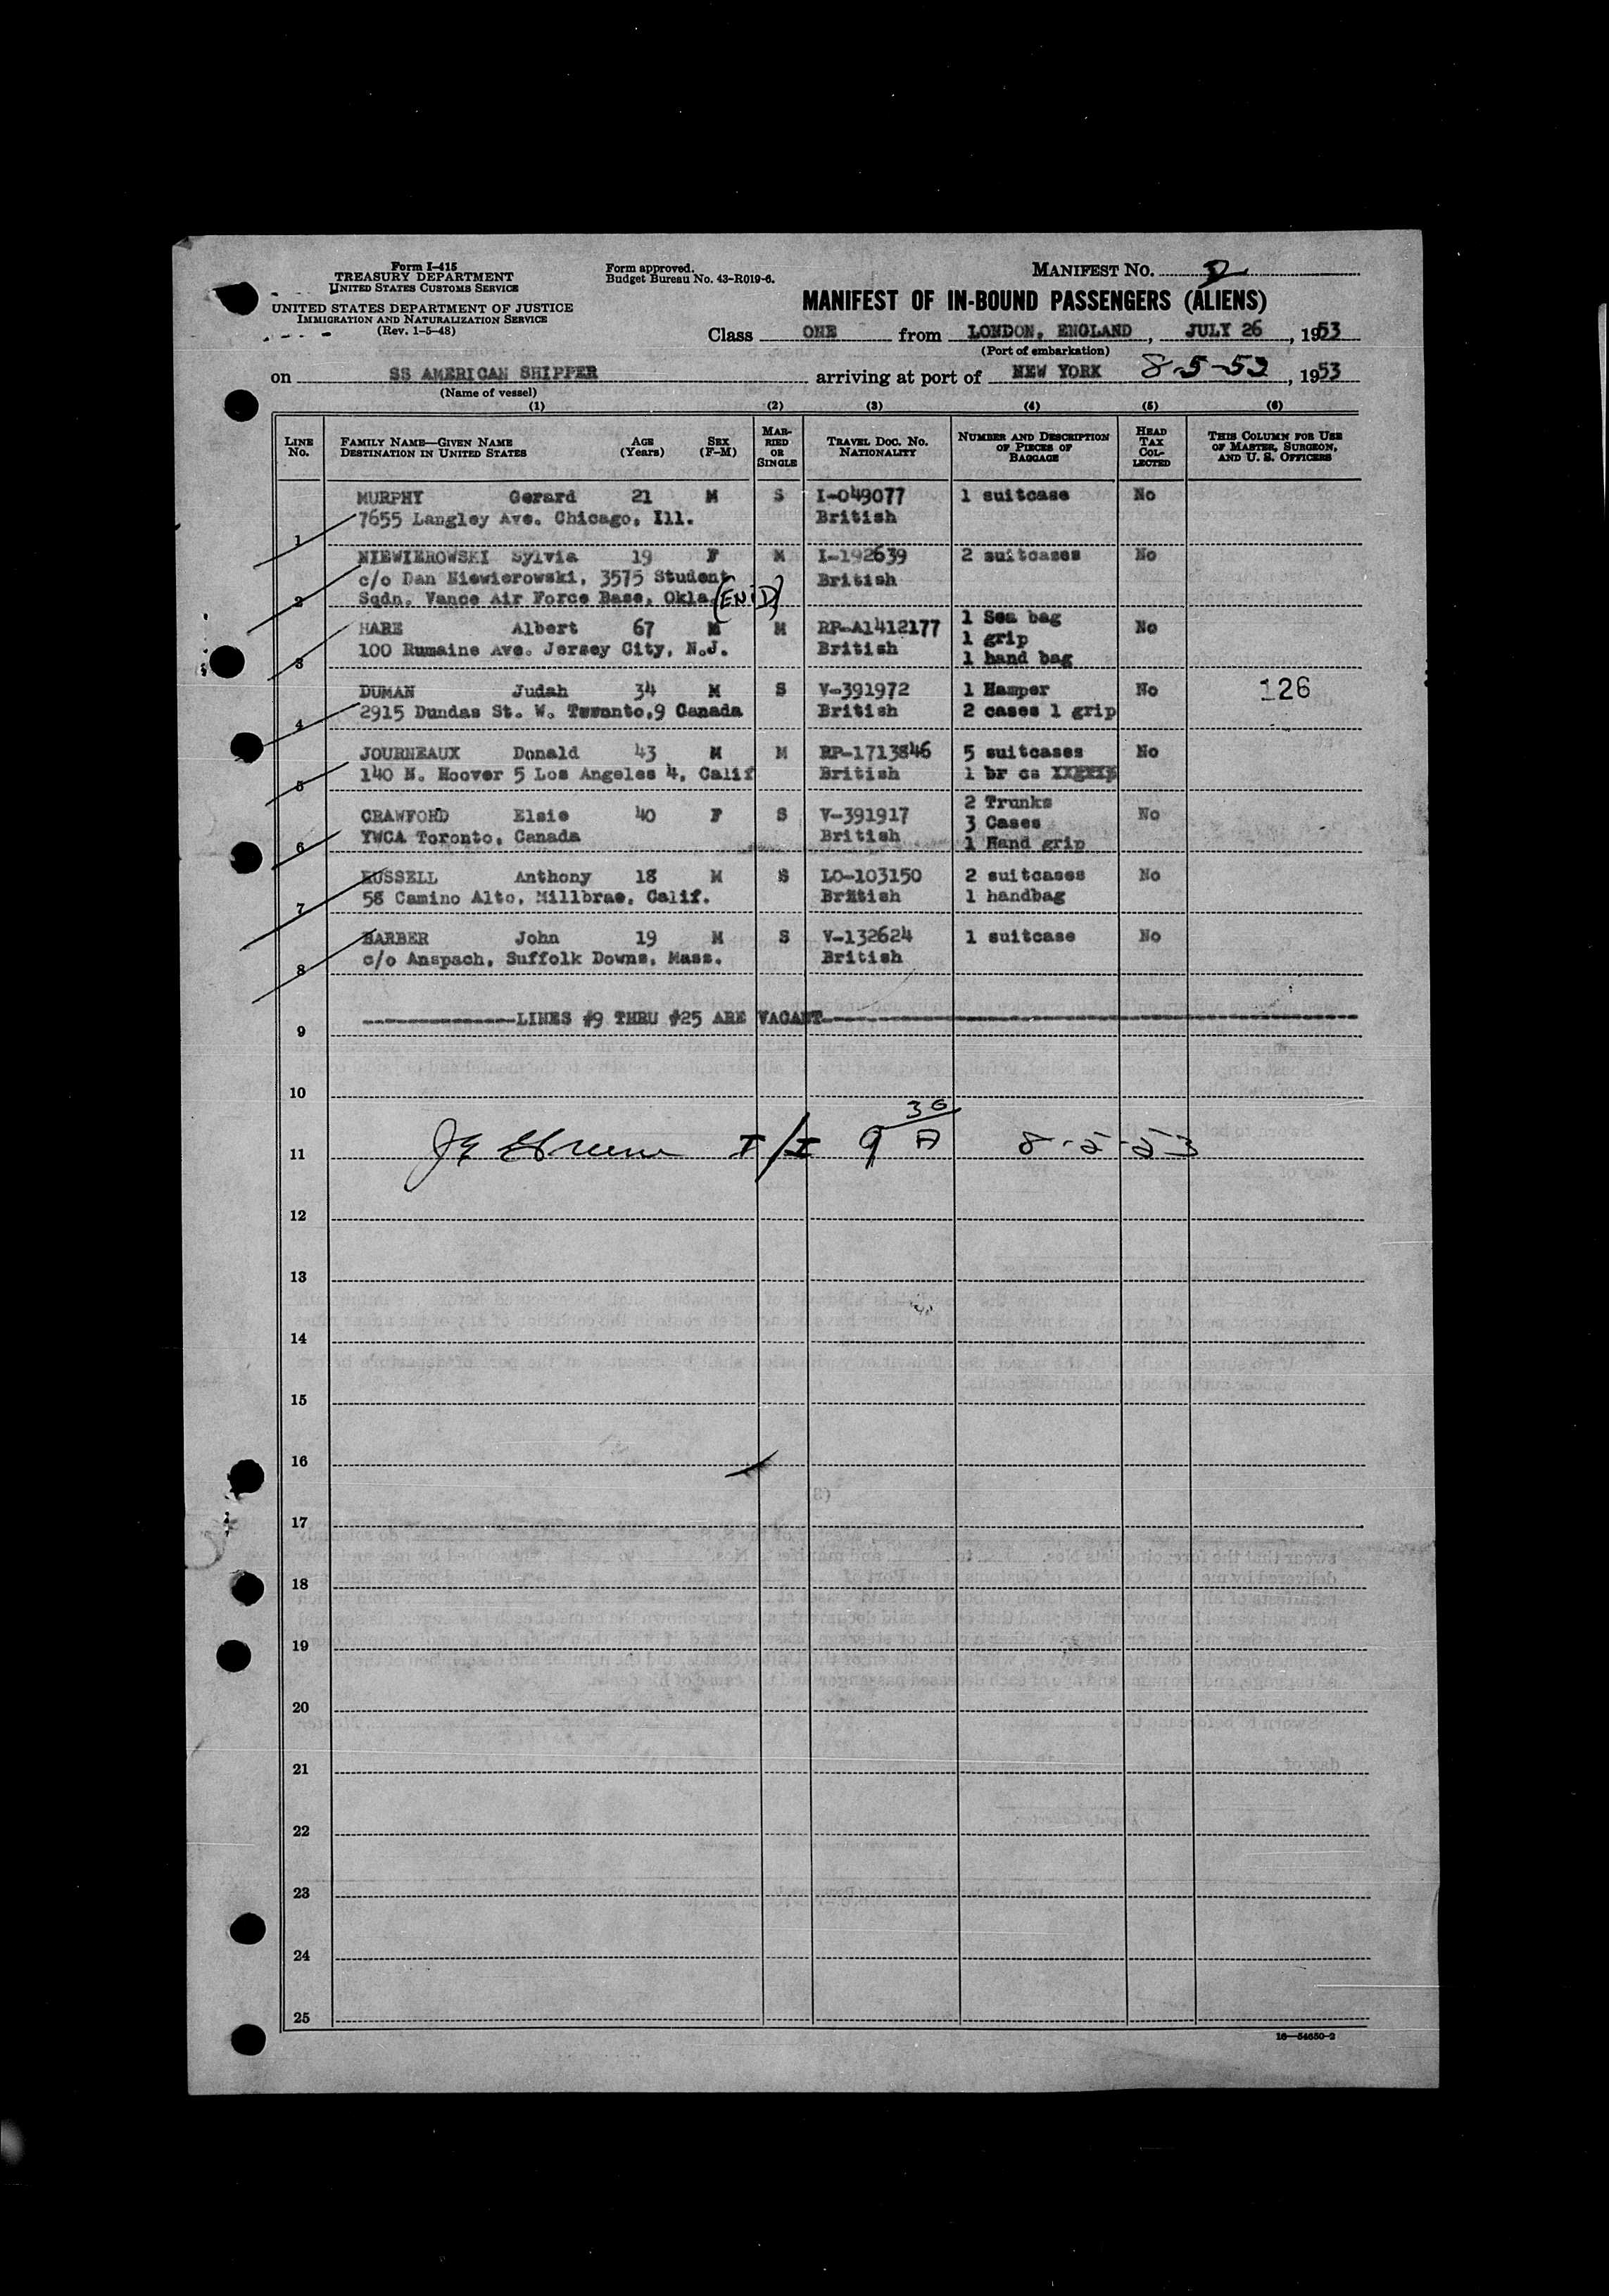 Form I-415
TREASURY DEPARTMENT
UNITED STATES CUSTOMS SERVICE
UNITED STATES DEPARTMENT OF JUSTICE
IMMIGRATION AND NATURALIZATION SERVICE
(Rev. 1-5-48)
Form approved.
Budget Bureau No. 43-R019-6.
MANIFEST NO.
MANIFEST OF IN-BOUND PASSENGERS (ALIENS)
Class ONE from LONDON, ENGLAND, JULY 26, 1953
(Port of embarkation)
on SS AMERICAN SHIPPER arriving at port of NEW YORK 8-5-53, 1953
(Name of vessel)
(1) (2) (3) (4) (5) (6)
LINE No. FAMILY NAME—GIVEN NAME DESTINATION IN UNITED STATES AGE (Years) SEX (F-M) MARRIED OR SINGLE TRAVEL DOC. NO. NATIONALITY NUMBER AND DESCRIPTION OF PIECES OF BAGGAGE HEAD TAX COLLECTED THIS COLUMN FOR USE OF MASTER, SURGEON, AND U. S. OFFICERS
MURPHY Gerard 21 M S I-049077 1 suitcase No
7655 Langley Ave. Chicago, Ill. British
1
NIEWIEROWSKI Sylvia 19 F M I-192639 2 suitcases No
c/o Dan Niewierowski, 3575 Student British
2 Sqdn. Vance Air Force Base, Okla. (ENID)
1 Sea bag
HARE Albert 67 M M RP-A1412177 1 grip No
100 Rumaine Ave. Jersey City, N.J. British 1 hand bag
3
DUMAN Judah 34 M S V-391972 1 Hamper No 126
2915 Dundas St. W. Toronto,9 Canada British 2 cases 1 grip
4
JOURNEAUX Donald 43 M M RP-1713846 5 suitcases No
140 N. Hoover 5 Los Angeles 4, Calif British 1 br cs
5
2 Trunks
CRAWFORD Elsie 40 F S V-391917 3 Cases No
YWCA Toronto, Canada British 1 Hand grip
6
RUSSELL Anthony 18 M S LO-103150 2 suitcases No
58 Camino Alto, Millbrae, Calif. British 1 handbag
7
BARBER John 19 M S V-132624 1 suitcase No
c/o Anspach, Suffolk Downs, Mass. British
8
LINES #9 THRU #25 ARE VACANT
9
10
11 I/I 9 30 A 8-5-53
12
13
14
15
16
17
18
19
20
21
22
23
24
25
16—54650-2